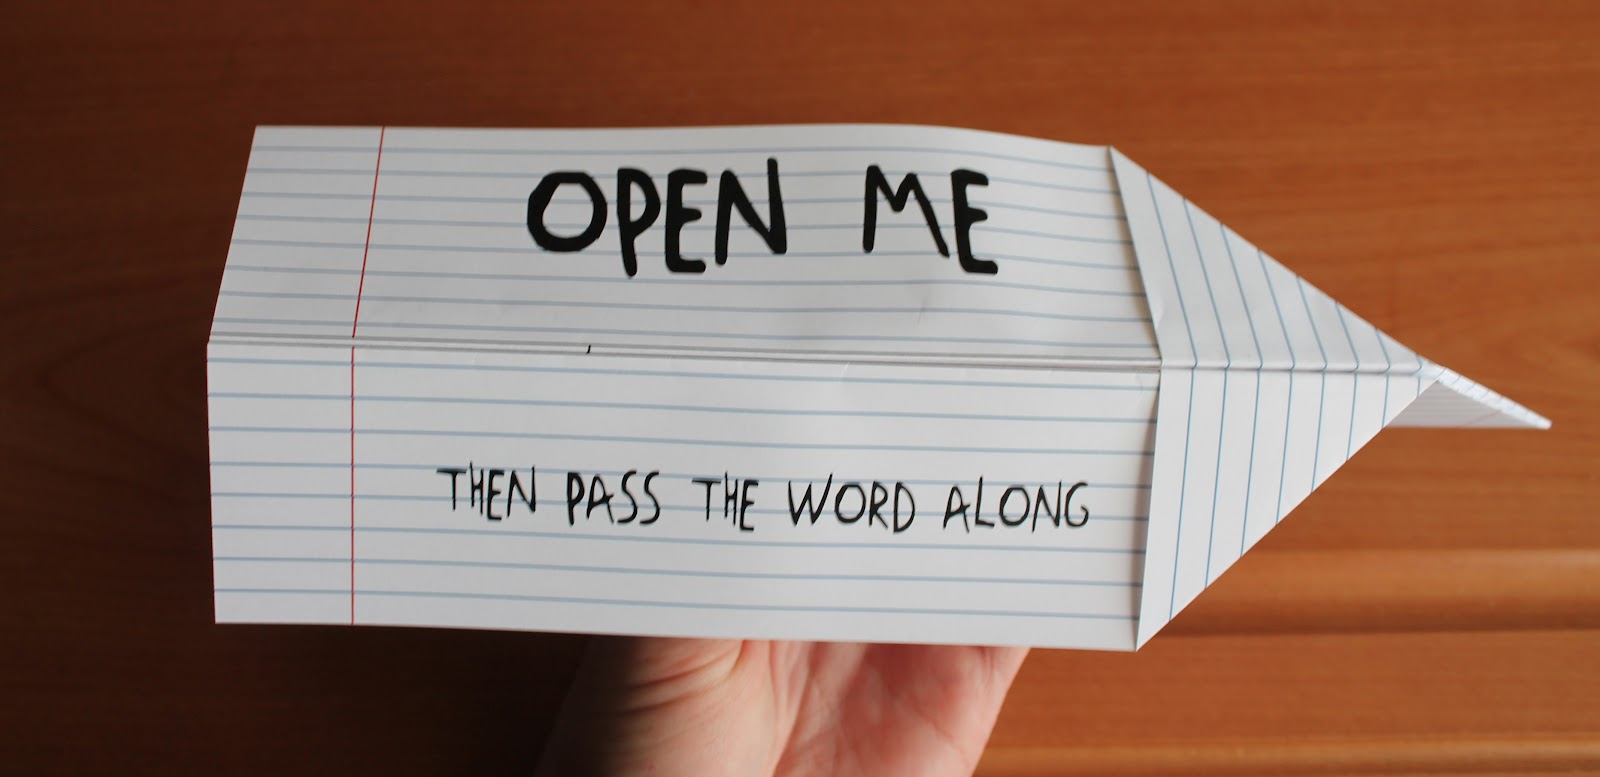 OPEN ME
THEN PASS THE WORD ALONG